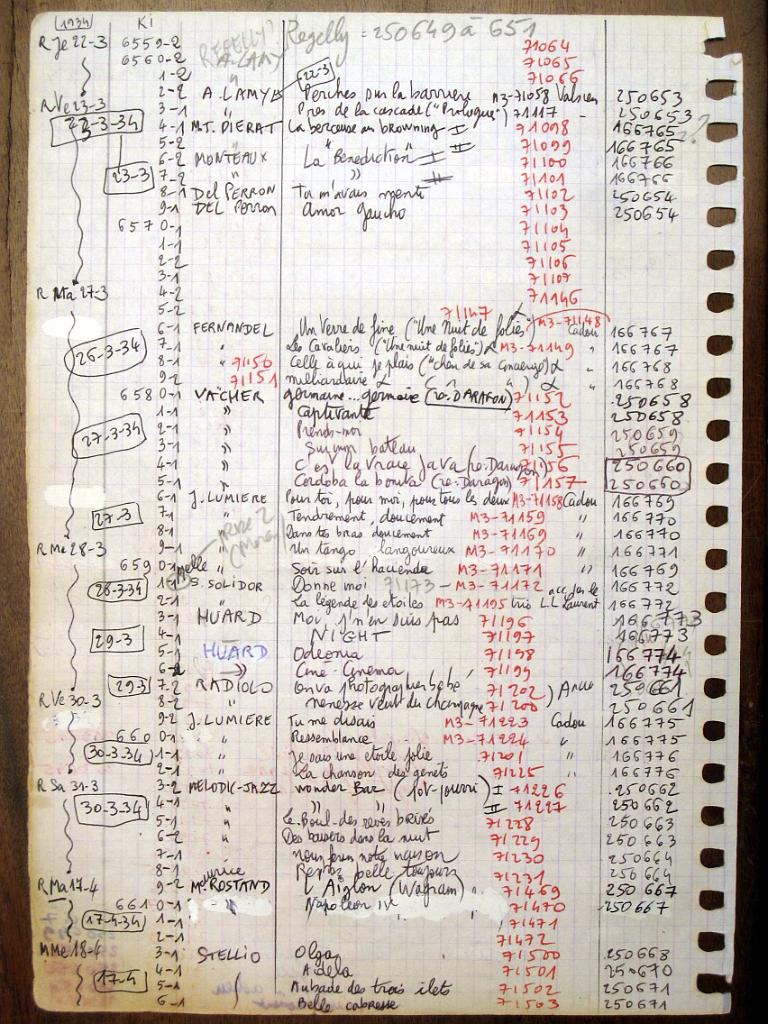 (1934) KI Regelly = 250649 à 651
R Je 22-3 6559-2 REGELLY? 71064
6560-2 A. LAMY 71065
1-2 " 71066
2-2 A. LAMY 22-3 Perches sur la barrière M3-71058 Valsien 250653
R Ve 23-3 3-1 " Près de la cascade ("Prologue") 71117 " 250653
22-3-34 4-1 M.T. PIERAT La berceuse au browning I 71098 166765
5-2 " II 71099 166765 ?
6-2 MONTEAUX La "Benediction" I 71100 166766
23-3 7-2 " " II 71101 166766
8-1 Del PERRON Tu m'avais menti 71102 250654
9-1 DEL PERRON Amor gaucho 71103 250654
657 0-1 71104
1-1 71105
2-2 71106
3-1 71107
R Ma 27-3 4-2 71146
5-2 71147
6-1 FERNANDEL Un Verre de fine ("Une Nuit de folies") M3-71148 Cadou 166767
26-3-34 7-1 " Les Cavaliers ("Une nuit de folies") M3-71149 " 166767
8-1 " 71150 Celle à qui je plais ("chéri de sa concierge") " 166768
9-2 71151 milliardaire " " 166768
658 0-1 VACHER germaine...germaine (ro. DARAGON) 71152 250658
1-1 " Captivante 71153 250658
27-3-34 2-1 " Prends-moi 71154 250659
3-1 " Sur mon bateau 71155 250659
4-1 " C'est la vraie java (ro. Daragon) 71156 250660
5-1 " Cordoba la bonita (ro. Daragon) 71157 250660
6-1 J. LUMIERE Pour toi, pour moi, pour tous les deux M3-71158 Cadou 166769
27-3 7-1 " Tendrement, doucement M3-71159 " 166770
8-1 Dans tes bras doucement M3-71169 " 166770
R Me 28-3 9-1 " Un tango langoureux M3-71170 " 166771
659 0-1 Soir sur l'hacienda M3-71171 " 166769
28-3-34 1-1 Melle S. SOLIDOR Donne moi 71173 - M3-71172 acc. par le 166772
2-1 " La légende des etoiles M3-71195 trio L.L Laurent 166772
3-1 HUARD Moi, j'n'en suis pas 71196 166773
29-3 4-1 " NIGHT 71197 166773
5-1 HUARD Odeonia 71198 166774
6-2 " Ciné-Cinéma 71199 166774
R Ve 30-3 29-3 7-2 RADIOLO On va photographier bébé 71202 250661
8-2 " nenesse veut du champagne 71200 250661
9-2 J. LUMIERE Tu me disais M3-71223 Cadou 166775
660 0-1 " Ressemblance M3-71224 " 166775
30-3-34 1-1 " Je sais une etoile jolie 71201 " 166776
2-1 La chanson des genets 71225 " 166776
R Sa 31-3 3-2 MELODIC-JAZZ wonder Bar (pot-pourri) I 71226 250662
30-3-34 4-1 " " " II 71227 250662
5-1 " Le Boul. des reves brisés 71228 250663
6-2 " Des baisers dans la nuit 71229 250663
7-1 nous ferons notre maison 71230 250664
8-1 Reprez belle toujours 71231 250664
R Ma 17-4 9-2 Maurice ROSTAND L'Aiglon (Wagram) 71469 250667
661 0-1 " Napoléon IV 71470 250667
17-4-34 1-1 71471
2-1 71472
M Me 18-4 3-1 STELLIO Olga 71500 250668
4-1 Adela 71501 250670
17-4 5-1 Aubade des trois ilets 71502 250671
6-1 Belle cabresse 71503 250671